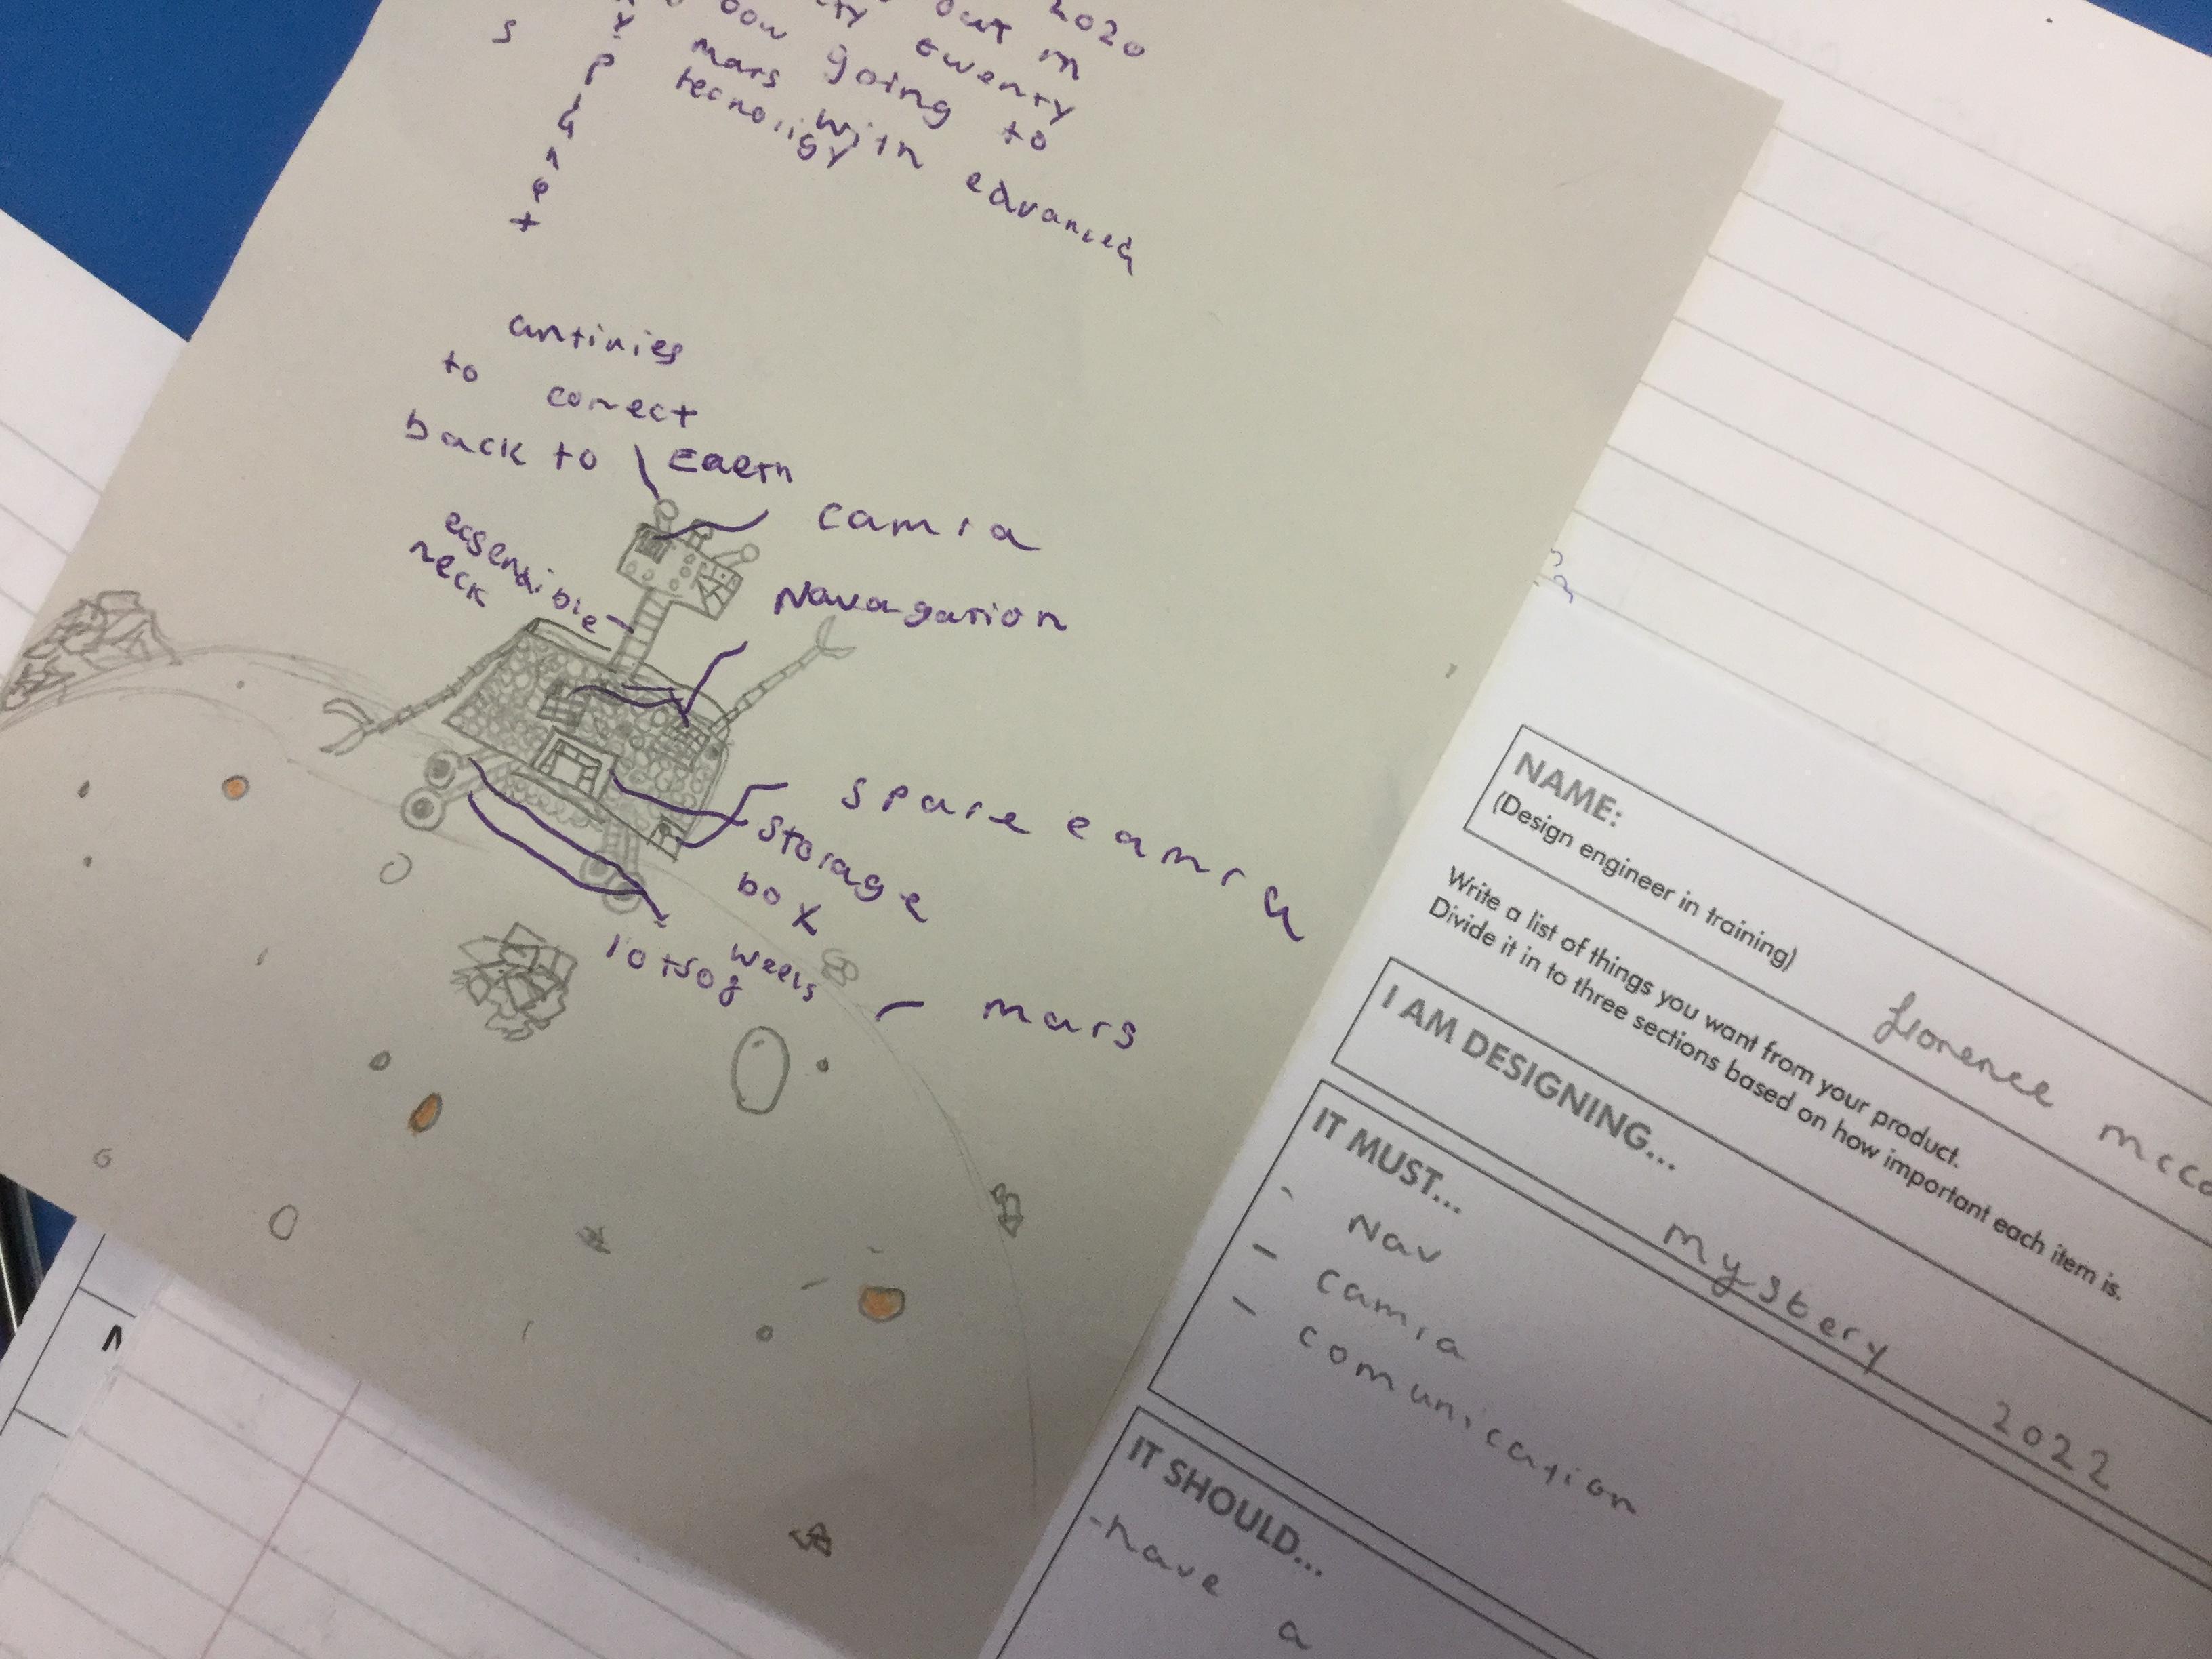 out in 2020
twenty
going to
mars with edvanced
tecnoligy
s
y
p
l
a
n
e
t
antinies
to conect
back to Eaerth
camra
ecsendible
neck
Navagation
spare camra
storage
box
lotsog weels
mars
NAME:
(Design engineer in training)
florence mcco
Write a list of things you want from your product.
Divide it in to three sections based on how important each item is.
I AM DESIGNING...
mystery 2022
IT MUST...
- Nav
- camra
- comunication
IT SHOULD...
-have a